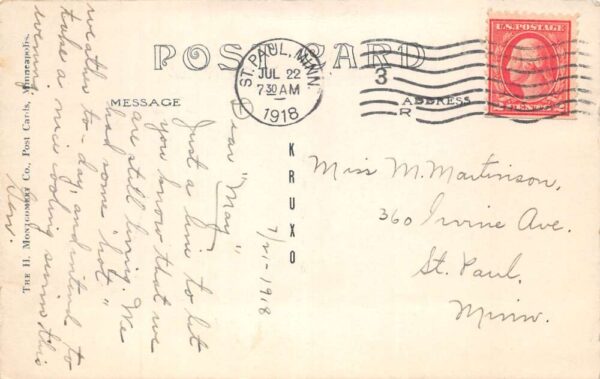 POST CARD
MESSAGE
ADDRESS
ST. PAUL, MINN.
JUL 22
7 30 AM
1918
3
R
U.S. POSTAGE
KRUXO
THE H. MONTGOMERY CO., Post Cards, Minneapolis.
7/21-1918
Dear "May"
Just a line to let
you know that we
are still living. We
had some "hot"
weather to-day, and intend to
take a nice cooling swim this
evening.
Miss M. Martinson,
360 Irvine Ave.
St. Paul,
Minn.